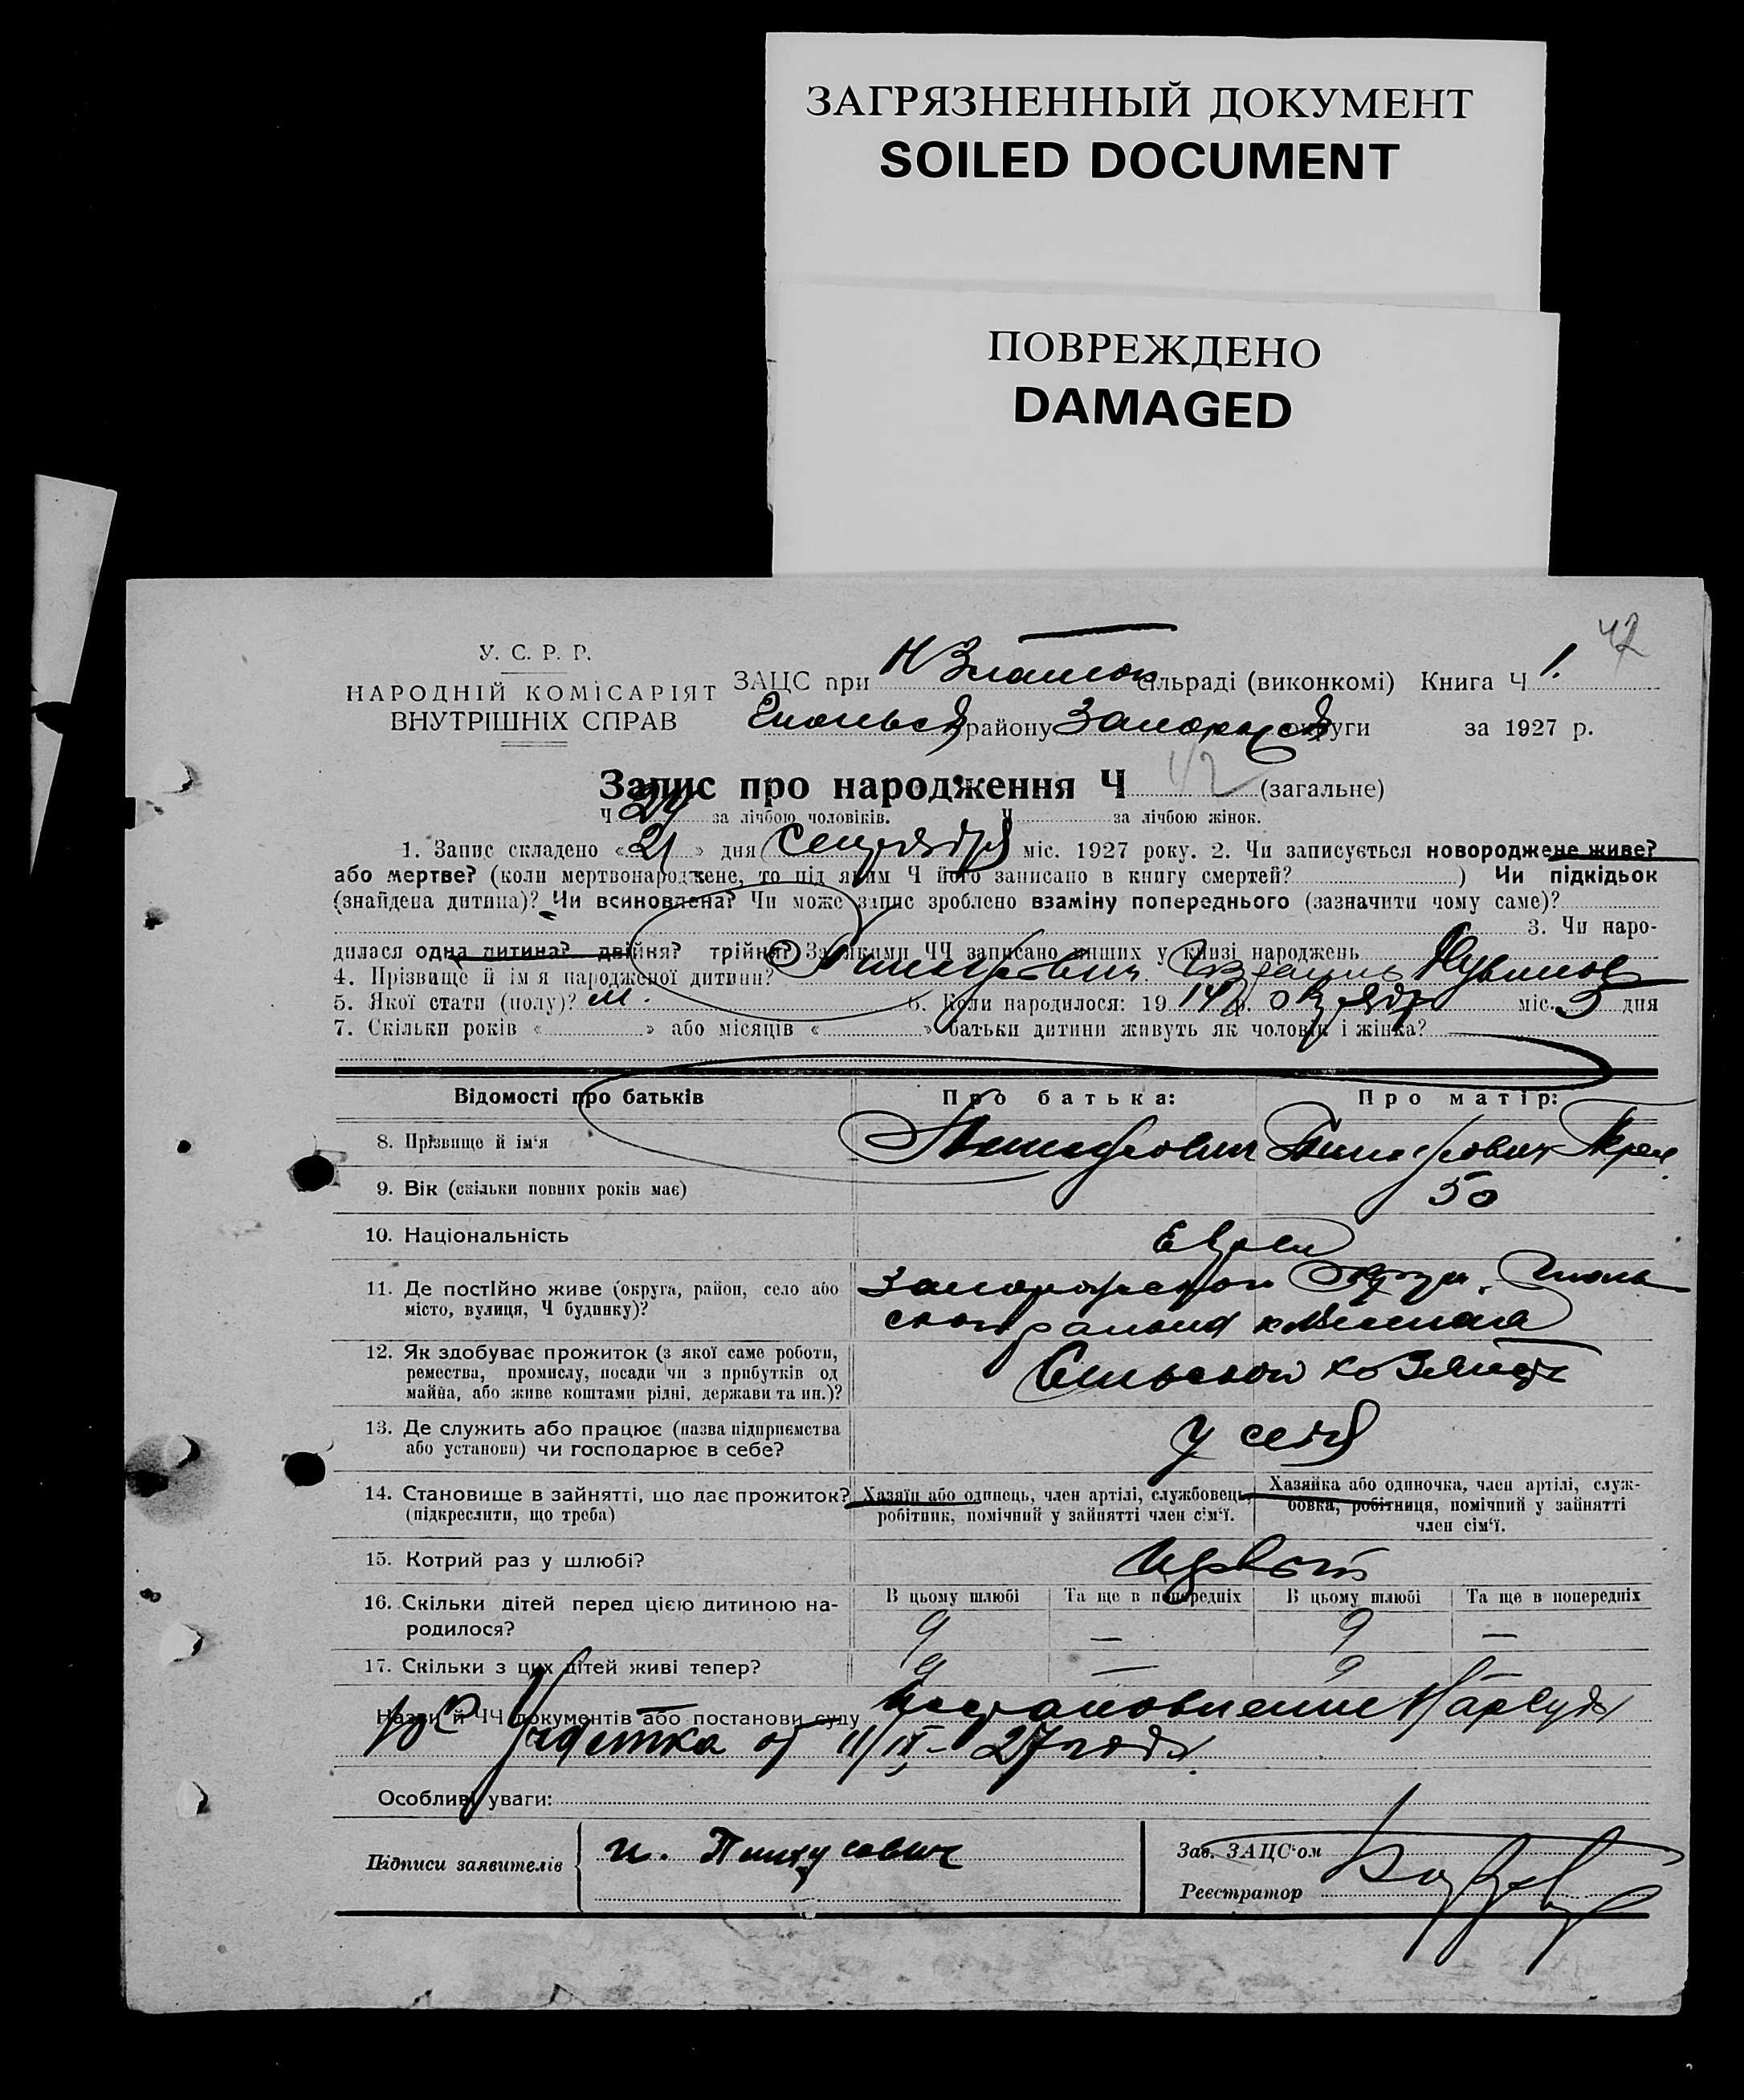 ЗАГРЯЗНЕННЫЙ ДОКУМЕНТ
SOILED DOCUMENT
ПОВРЕЖДЕНО
DAMAGED
42
У. С. Р. Р.
НАРОДНІЙ КОМІСАРІЯТ
ВНУТРІШНІХ СПРАВ
ЗАЦС при Н Златополь сільраді (виконкомі) Книга Ч 1.
району Запорож округи за 1927 р.
Запис про народження Ч 42 (загальне)
Ч 24 за лічбою чоловіків. Ч за лічбою жінок.
1. Запис складено «21» дня Сентября міс. 1927 року. 2. Чи записується новороджене живе?
або мертве? (коли мертвонароджене, то під яким Ч його записано в книгу смертей? ) Чи підкідьок
(знайдена дитина)? Чи всиновлена? Чи може запис зроблено взаміну попереднього (зазначити чому саме)?
3. Чи наро-
дилася одна дитина? двійня? трійня? За якими ЧЧ записано инших у книзі народжень
4. Прізвище й ім'я народженої дитини? Пинхусович
5. Якої стати (полу)? м. 6. Коли народилося: 1914 р. октября міс. 5 дня
7. Скільки років « » або місяців « » батьки дитини живуть як чоловік і жінка?
Відомості про батьків Про батька: Про матір:
8. Прізвище й ім'я Пинхусович Пинхусович
9. Вік (скільки повних років має) 50
10. Національність Евреи
11. Де постійно живе (округа, район, село або
місто, вулиця, Ч будинку)? Запорожской Округи,
района
12. Як здобуває прожиток (з якої саме роботи,
ремества, промислу, посади чи з прибутків од
майна, або живе коштами рідні, держави та ин.)? Сельское хозяйство
13. Де служить або працює (назва підприємства
або установи) чи господарює в себе? у себя
14. Становище в зайнятті, що дає прожиток?
(підкреслити, що треба)
Хазяїн або одинець, член артілі, службовець,
робітник, помічний у зайнятті член сім'ї.
Хазяйка або одиночка, член артілі, служ-
бовка, робітниця, помічний у зайнятті
член сім'ї.
15. Котрий раз у шлюбі? первый
16. Скільки дітей перед цією дитиною на-
родилося?
В цьому шлюбі Та ще в попередніх В цьому шлюбі Та ще в попередніх
9 — 9 —
17. Скільки з цих дітей живі тепер? 9 — 9 —
Назви й ЧЧ документів або постанови суду Постановление Нарсуда
Участка от 11/IX - 27 года.
Особливі уваги:
Підписи заявителів и. Пинхусович
Зав. ЗАЦС'ом
Реєстратор